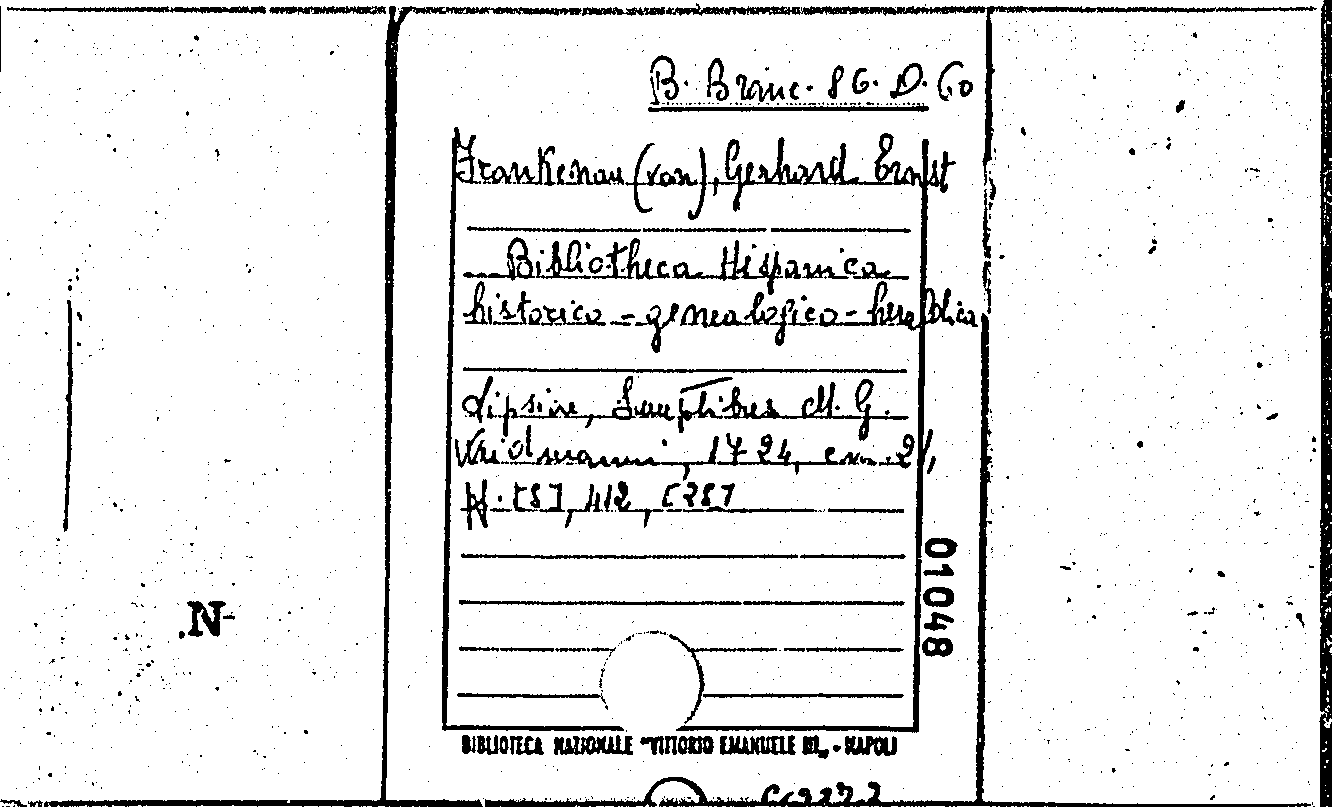 B. Branc. 86. D. 60
Frankenau (von), Gerhard Ernst
Bibliotheca Hispanica
historico-genealogico-heraldica
Lipsiae, Sumptibus M. G.
Weidmanni, 1724, cm. 21,
pp. [8], 412, [28]
01048
.N-
BIBLIOTECA NAZIONALE "VITTORIO EMANUELE III„ - NAPOLI